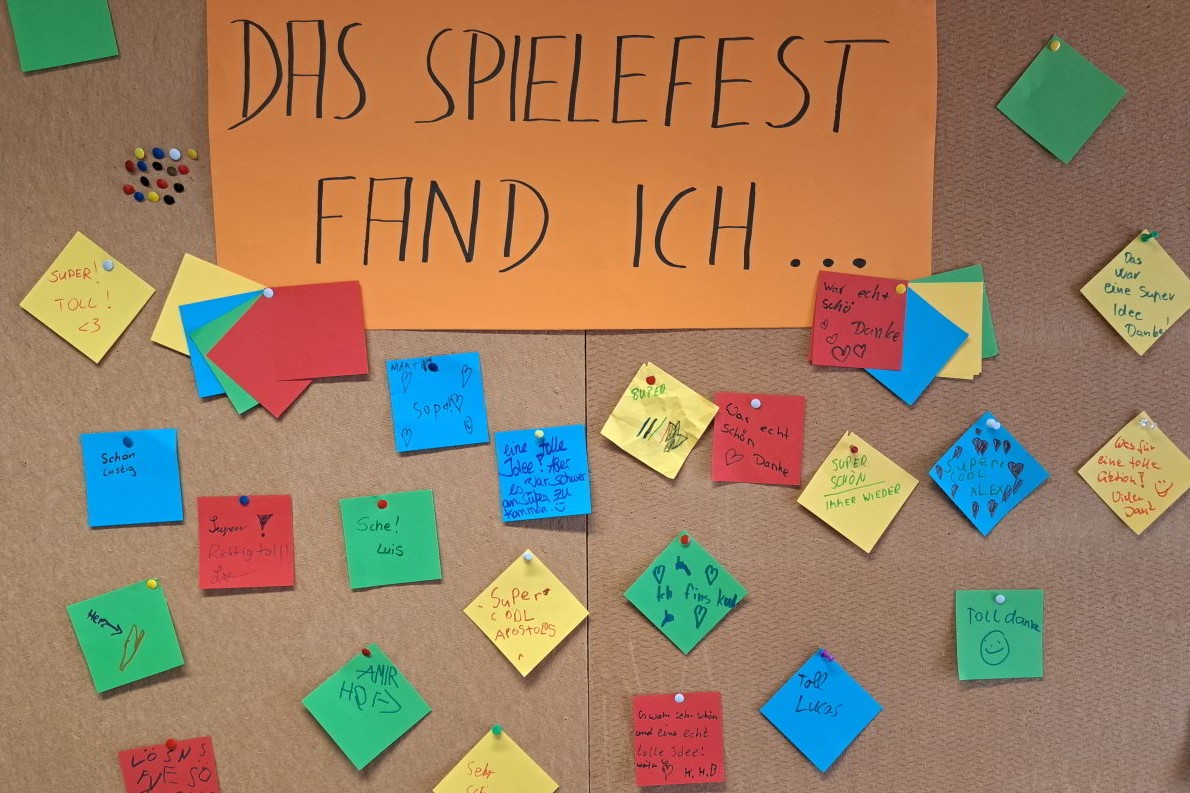 DAS SPIELEFEST
FAND ICH...
SUPER!
TOLL!
<3
War echt
schö
Danke
Das
war
eine Super
Idee
Danke!
Super
Schön
lustig
eine tolle
Idee! Aber
es war schwer
zu
kommen.
SUPER
War echt
schön
Danke
SUPER
SCHÖN
IMMER WIEDER
Super
COOL
ALEX
Was für
eine tolle
Aktion!
Vielen
Dank
Super!
Richtig toll!
Sche!
Luis
Super
COOL
APOSTOLOS
Ich fins kool
Toll danke
Herz
AMIR
HDF
Toll
Lucas
Es wahr sehr schön
und eine echt
tolle Idee!
weiter so
H.H.B
LÖSNS
AVE SO
Sehr